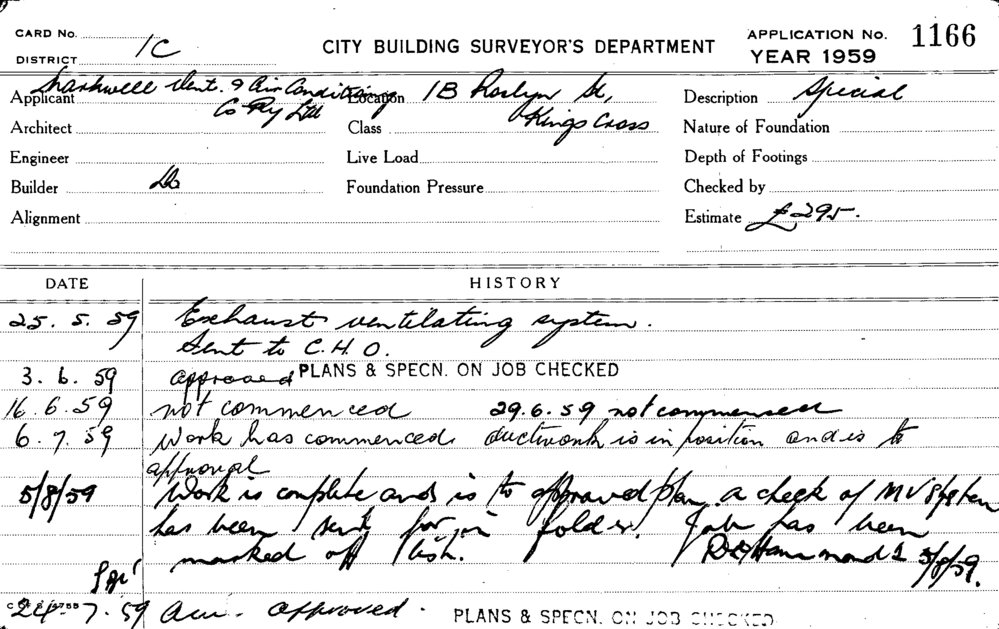 CARD No.
DISTRICT 1C
CITY BUILDING SURVEYOR'S DEPARTMENT
APPLICATION No. 1166
YEAR 1959
Applicant Sharkwell Vent. & Air Conditioning Co Pty Ltd
Location 1B Roslyn St, Kings Cross
Description Special
Architect
Class
Nature of Foundation
Engineer
Live Load
Depth of Footings
Builder Do
Foundation Pressure
Checked by
Alignment
Estimate £295-.
DATE HISTORY
25. 5. 59 Exhaust ventilating system.
Sent to C.H.O.
3. 6. 59 approved PLANS & SPECN. ON JOB CHECKED
16. 6. 59 not commenced 29.6.59 not commenced
6. 7. 59 Work has commenced. ductwork is in position and is to
approval
5/8/59 Work is complete and is to approved plan. a check of MV System
has been sent for in folder. Job has been
marked off list. 5/8/59.
24. 7. 59 Am. approved. PLANS & SPECN. ON JOB CHECKED